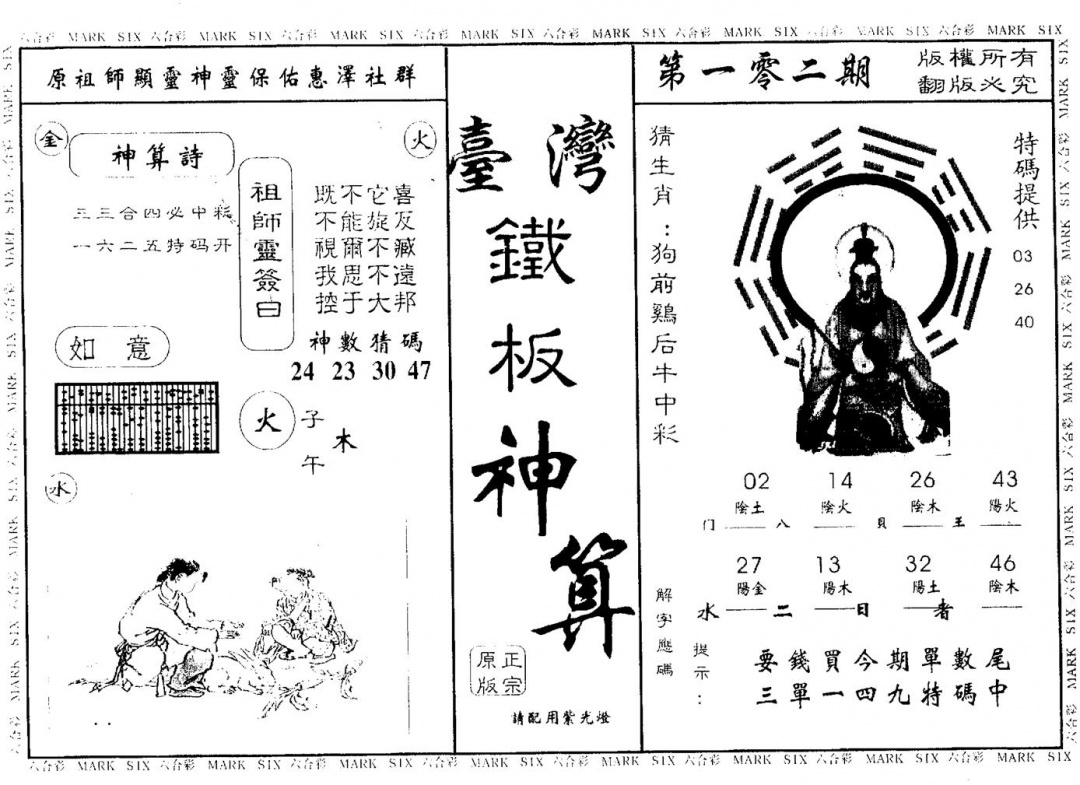 六合彩 MARK SIX 六合彩 MARK SIX 六合彩 MARK SIX 六合彩 MARK SIX 六合彩 MARK SIX 六合彩 MARK SIX 六合彩 MARK SIX 六合彩 MARK SIX
原祖師顯靈神靈保佑惠澤社群
金
神算詩
火
三三合四必中彩
一六二五特码开
祖師靈簽曰
既不它喜
不能旋反
視爾不臧
我思不遠
控于大邦
神數猜碼
24 23 30 47
如意
火
子
午
木
水
臺灣
鐵
板
神
算
正宗
原版
請配用紫光燈
第一零二期
版權所有
翻版必究
猜生肖：狗前鷄后牛中彩
特碼提供
03
26
40
02 14 26 43
陰土 陰火 陰木 陽火
门 八 貝 王
27 13 32 46
陽金 陽木 陽土 陰木
水 二 日 者
解字應碼
提示：
要錢買今期單數尾
三單一四九特碼中
六合彩 MARK SIX 六合彩 MARK SIX 六合彩 MARK SIX 六合彩 MARK SIX 六合彩 MARK SIX 六合彩 MARK SIX 六合彩 MARK SIX 六合彩 MARK SIX